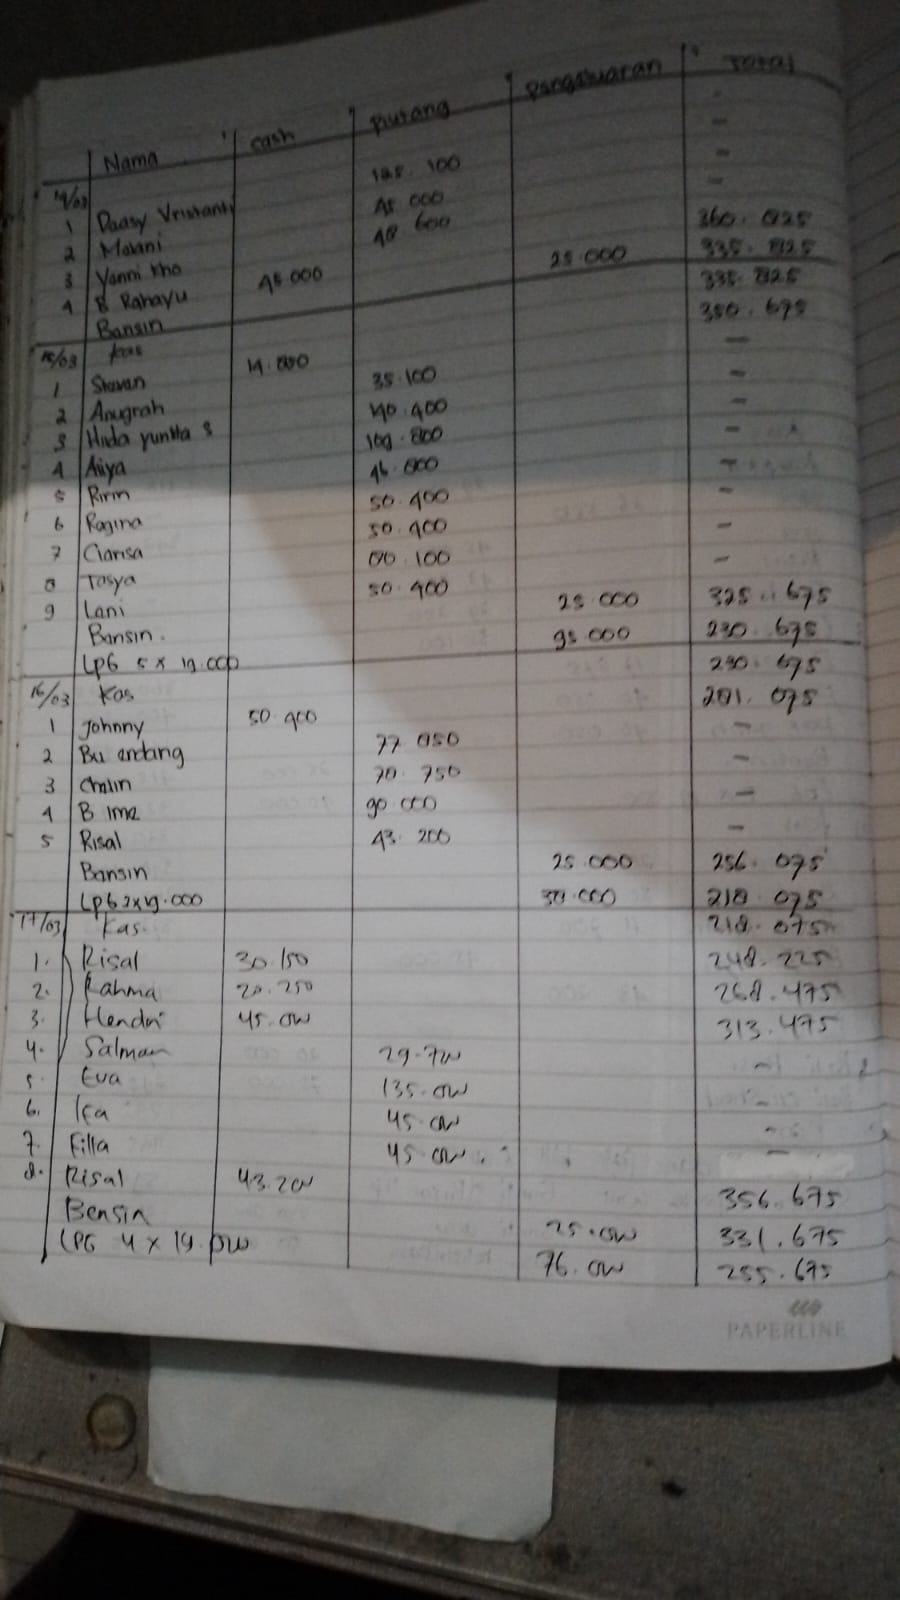 Nama cash Piutang Pengeluaran Total
14/03
1 Deasy Vristanti 125.100 -
2 Melani 45 000 -
3 Yenni kho 48 600 -
4 B Rahayu 45.000 360.825
Bensin 25.000 335.825
15/03 Kas 335.825
1 Stevan 14.850 350.675
2 Anugrah 35.100 -
3 Hilda yunita S 40.400 -
4 Aiiya 109.800 -
5 Ririn 46.800 -
6 Regina 50.400 -
7 Clarisa 50.400 -
8 Tasya 80.100 -
9 Lani 50.400 -
Bensin. 25.000 325.675
LPG 5 x 19.000 95.000 230.675
16/03 Kas 230.675
1 Johnny 50 400 281.075
2 Bu endang 77 850 -
3 Chilin 70.750 -
4 B ima 90.000 -
5 Risal 43.200 -
Bensin 25.000 256.075
LPG 2x19.000 38.000 218.075
17/03 Kas. 218.075
1. Risal 30.150 248.225
2. Rahma 20.250 268.475
3. Hendri 45.000 313.475
4. Salman 29.700 -
5. Eva 135.000 -
6. Ifa 45.000 -
7. Filla 45.000 -
8. Risal 43.200 356.675
Bensin 25.000 331.675
LPG 4 x 19.000 76.000 255.675
PAPERLINE